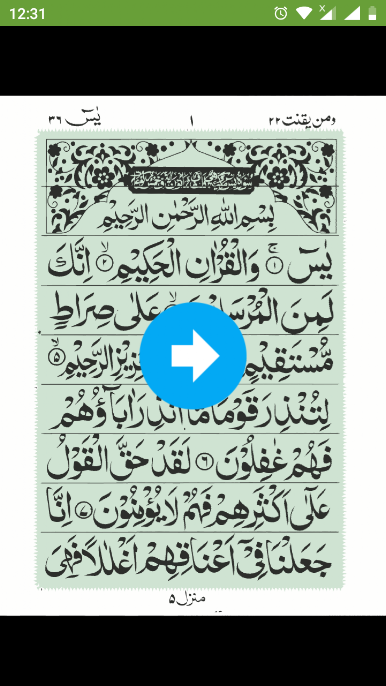 12:31
ومن يقنت ٢٢ ١ يٰسٓ ٣٦
بِسْمِ اللّٰهِ الرَّحْمٰنِ الرَّحِيْمِ
يٰسٓ ۚ ﴿١﴾ وَالْقُرْاٰنِ الْحَكِيْمِ ۙ ﴿٢﴾ اِنَّكَ
لَمِنَ الْمُرْسَلِيْنَ عَلٰى صِرَاطٍ
مُّسْتَقِيْمٍ الرَّحِيْمِ ۙ ﴿٥﴾
لِتُنْذِرَ قَوْمًا مَّاۤ اُنْذِرَ اٰبَآؤُهُمْ
فَهُمْ غٰفِلُوْنَ ﴿٦﴾ لَقَدْ حَقَّ الْقَوْلُ
عَلٰٓى اَكْثَرِهِمْ فَهُمْ لَا يُؤْمِنُوْنَ ﴿٧﴾ اِنَّا
جَعَلْنَا فِيْٓ اَعْنَاقِهِمْ اَغْلٰلًا فَهِيَ
منزل ٥